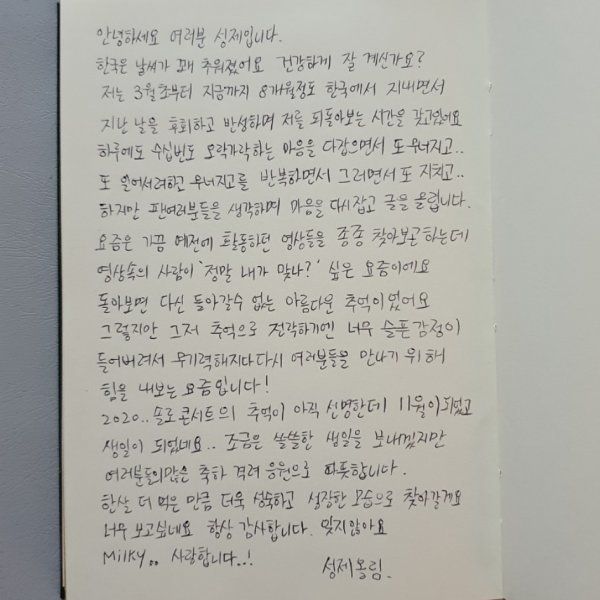 안녕하세요 여러분 성제입니다.
한국은 날씨가 꽤 추워졌어요 건강하게 잘 계신가요?
저는 3월초부터 지금까지 8개월정도 한국에서 지내면서
지난 날을 후회하고 반성하며 저를 되돌아보는 시간을 갖고있어요
하루에도 수십번도 오락가락하는 마음을 다잡으면서 또 무너지고..
또 일어서려하고 무너지고를 반복하면서 그러면서 또 지치고..
하지만 팬여러분들을 생각하며 마음을 다시잡고 글을 올립니다.
요즘은 가끔 예전에 활동하던 영상들을 종종 찾아보곤하는데
영상속의 사람이 '정말 내가 맞나?' 싶은 요즘이에요
돌아보면 다신 돌아갈수 없는 아름다운 추억이었어요
그렇지만 그저 추억으로 전락하기엔 너무 슬픈감정이
들어버려서 무기력해지다 다시 여러분들을 만나기 위해
힘을 내보는 요즘입니다!
2020.. 솔로콘서트의 추억이 아직 선명한데 11월이 되었고
생일이 되었네요.. 조금은 쓸쓸한 생일을 보내겠지만
여러분들의많은 축하 격려 응원으로 따듯합니다.
한살 더 먹은 만큼 더욱 성숙하고 성장한 모습으로 찾아갈게요
너무 보고싶네요 항상 감사합니다. 잊지않아요
Milky.. 사랑합니다..!
성제올림.